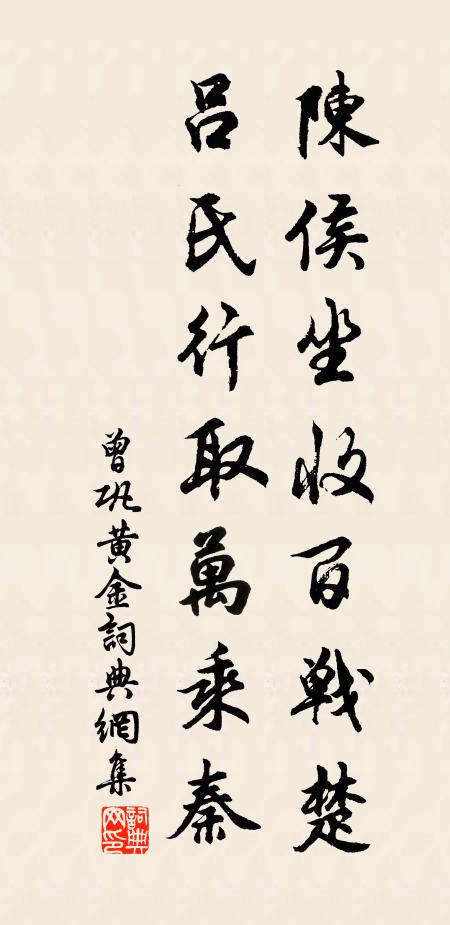 陳侯坐收百戰楚
呂氏行取萬乘秦
曾巩黄金詞典網集
詞典網印